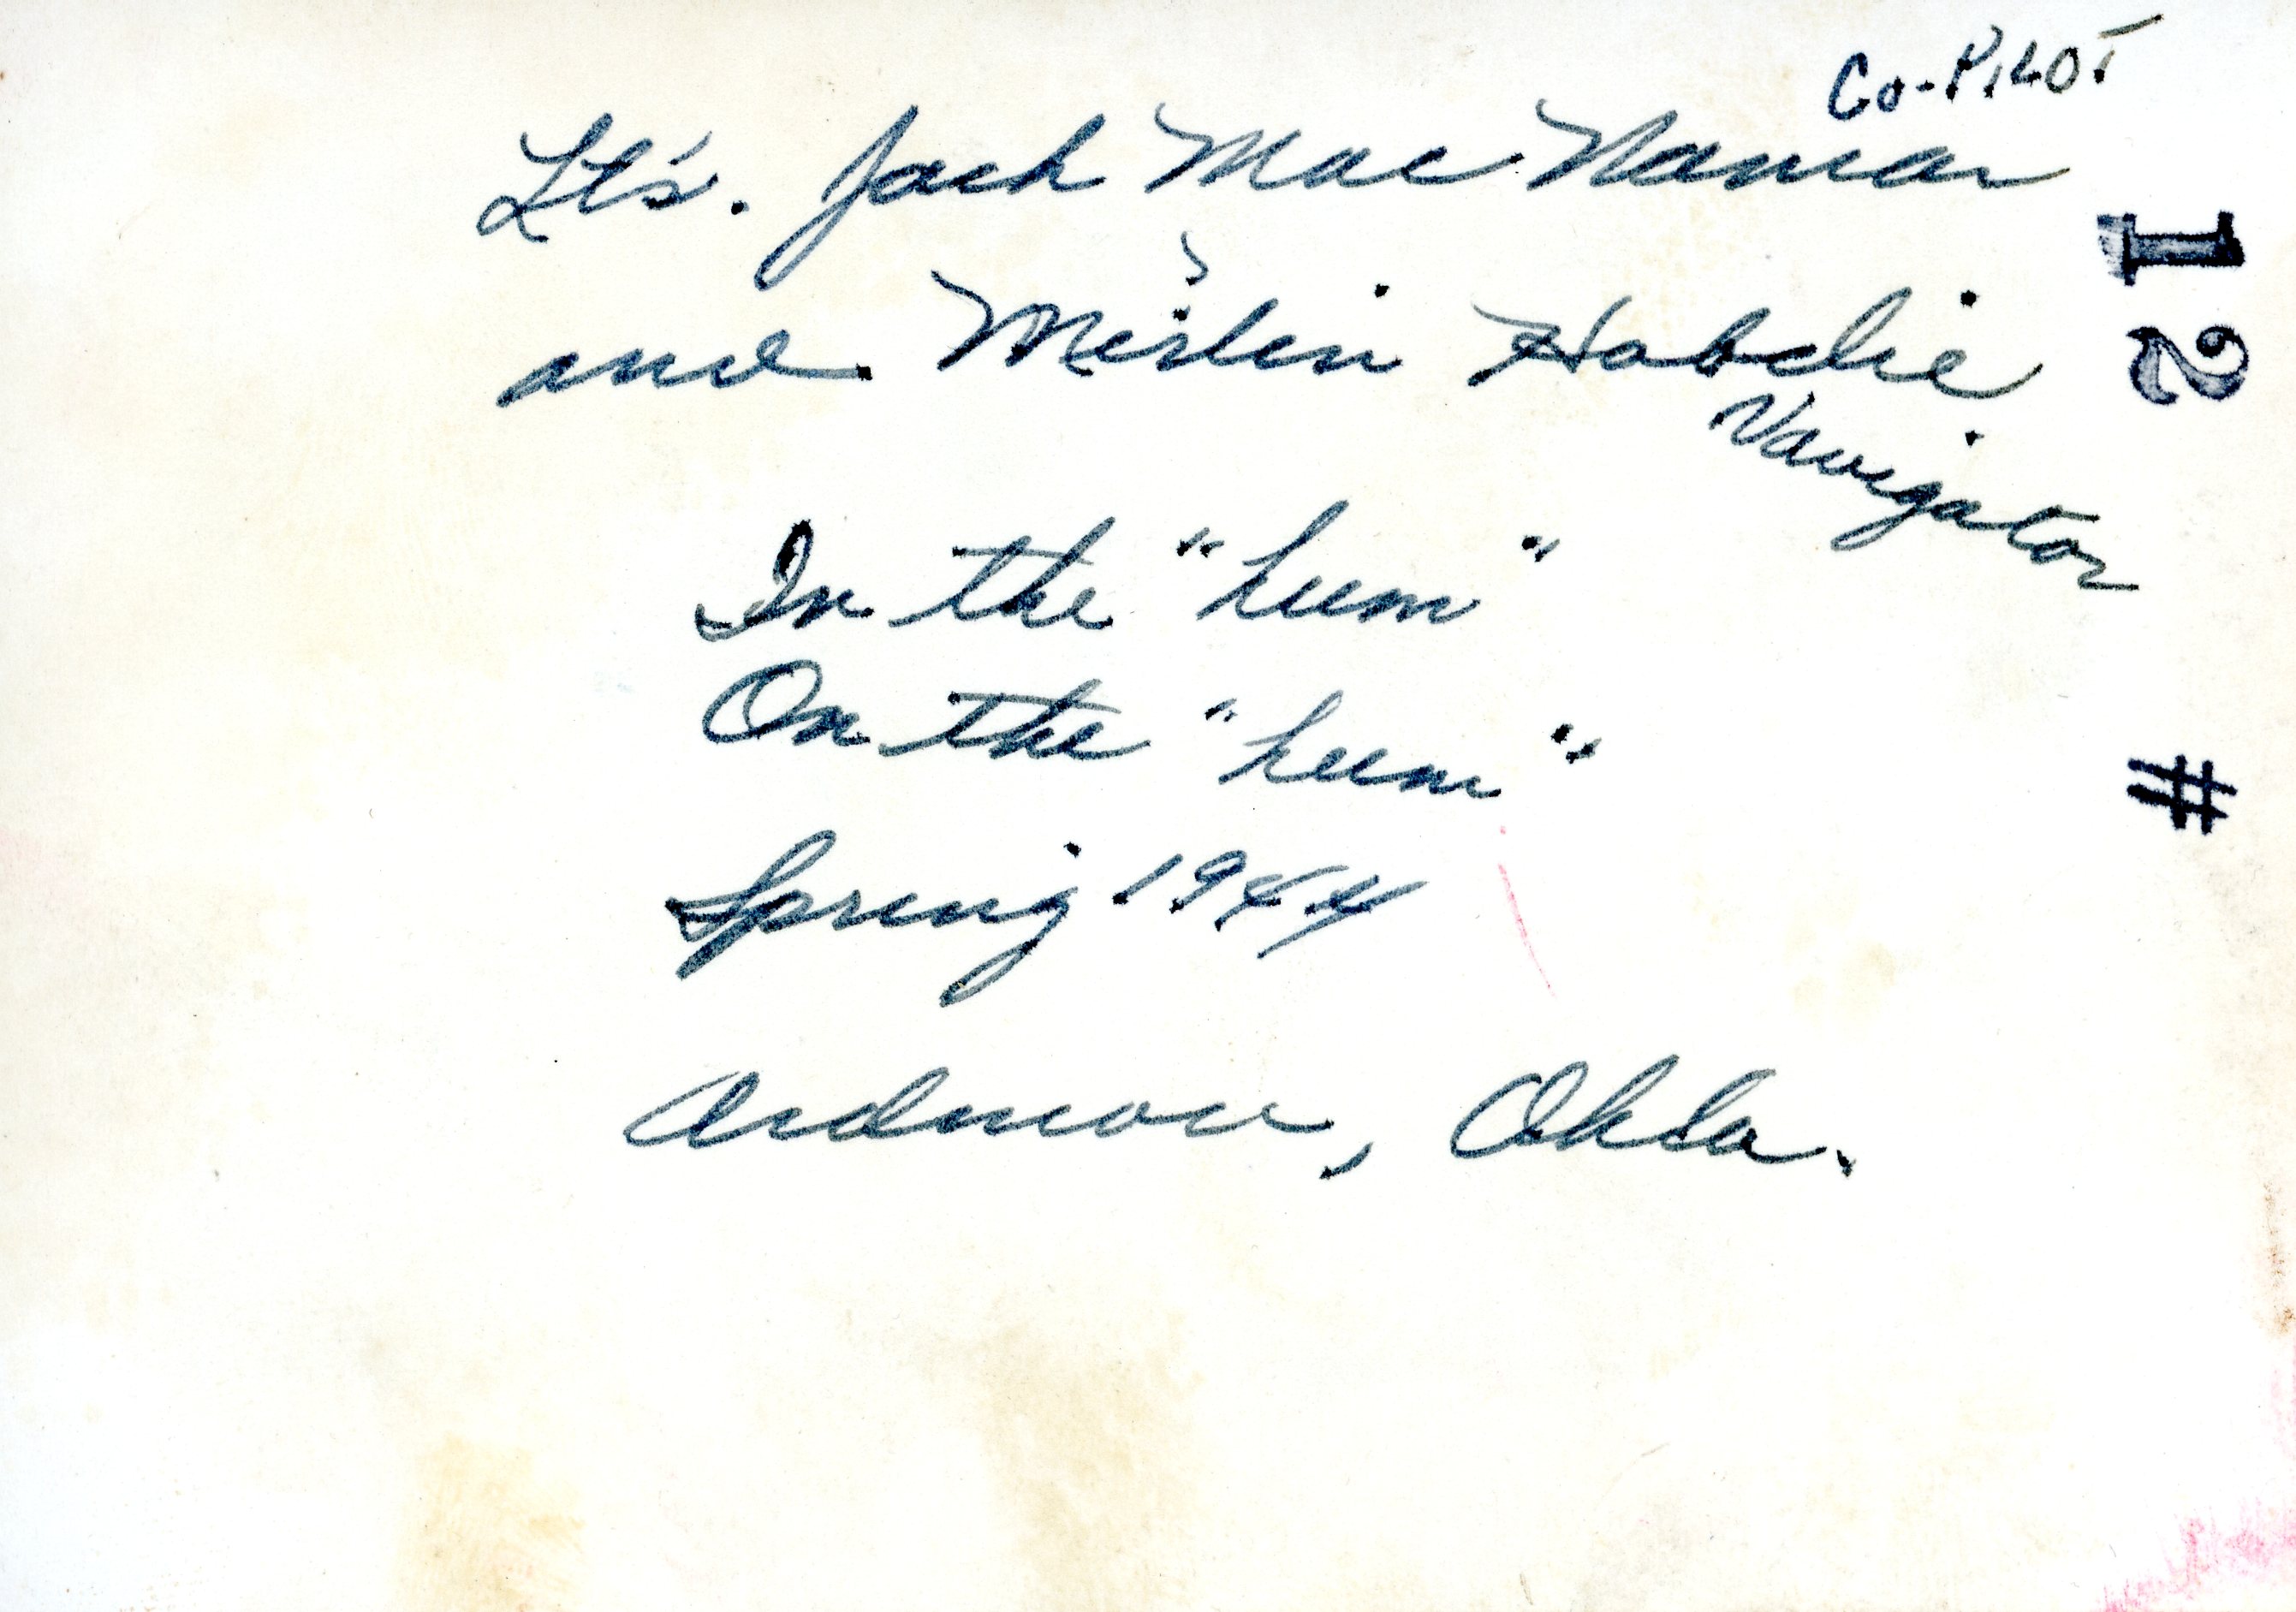 Co-PILOT
Lt's. Jack Mac Namar
and Merlin
Navigator
In the "hum"
On the "hum"
Spring 1944
Ardmore, Okla.
12
#